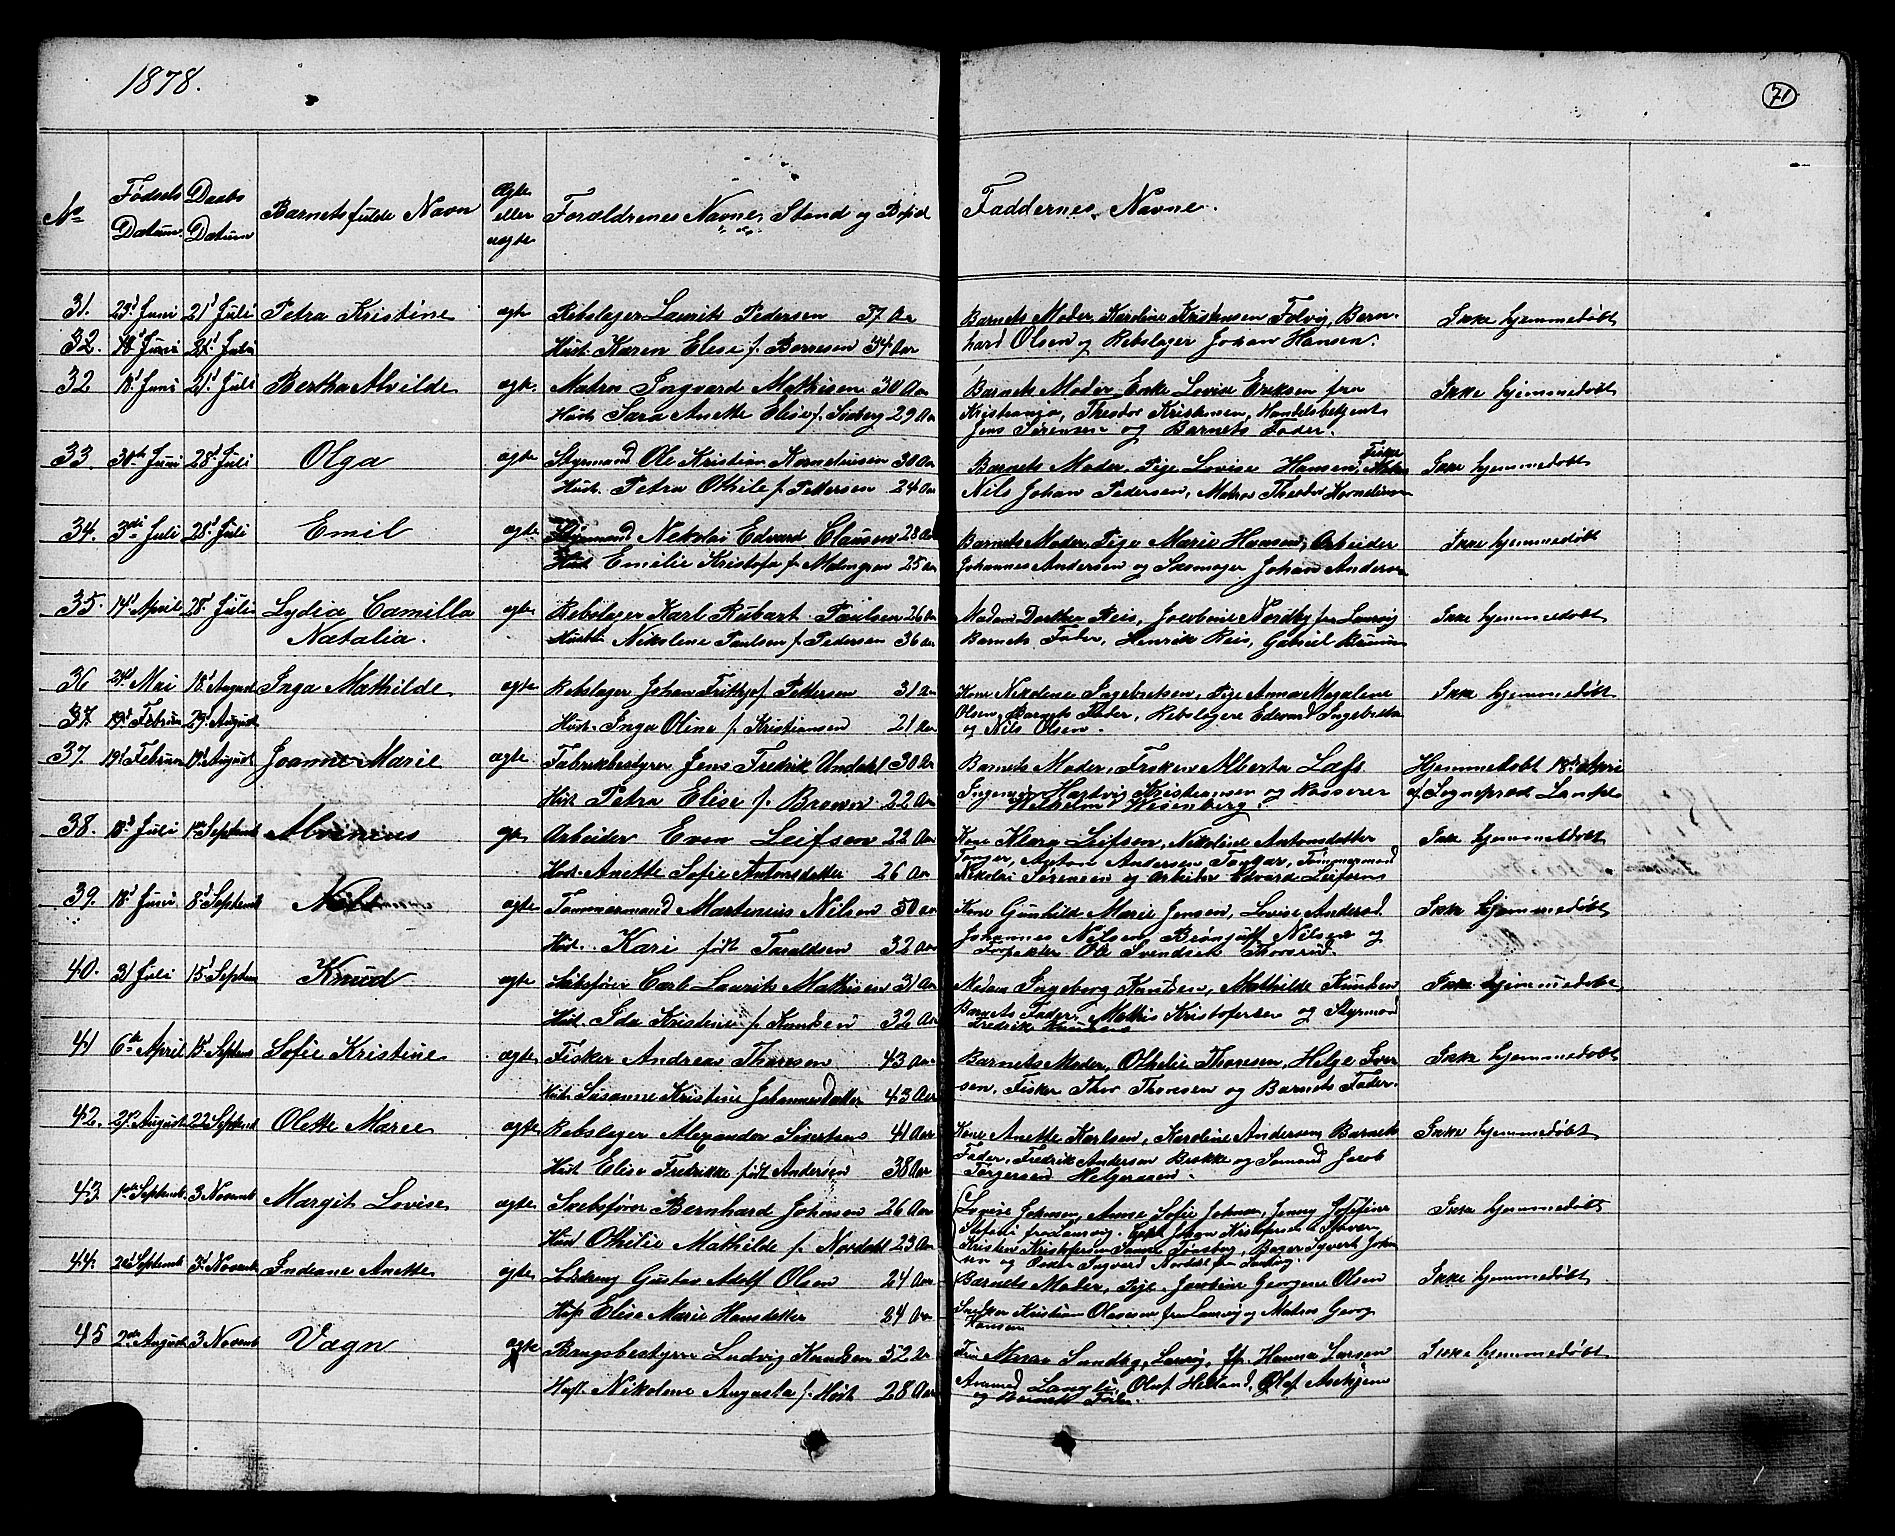 1878.
71
No
Fødsels Datum
Daabs Datum
Barnets fulde Navn
Ægte eller uægte
Forældrenes Navne, Stand og Bopæl
Faddernes Navne.
31. 23d Juni 21d Juli Petra Kristine ægte Rebslager Laurits Pedersen 37 Aar
Hust. Karen Elise f. Borresen 34 Aar
Barnets Moder, Karoline Kristensen Folvig, Bern-
hard Olsen og Rebslager Johan Hansen.
Ikke hjemmedøbt
32. 18d Juni 21d Juli
32 18d Juni 21d Juli Bertha Alvilde ægte Matros Ingvard Mathisen 30 Aar
Hust. Sara Anette Elise f. 29 Aar
Barnets Moder, Enke Lovise Eriksen fra
Kristiania, Theodor Kristensen, Handelsbetjent
Jens Sørensen og Barnets Fader.
Ikke hjemmedøbt
33. 30te Juni 28d Juli Olga ægte Styrmand Ole Kristian Korneliusen 30 Aar
Hust. Petra Othile f. Pettersen 24 Aar
Barnets Moder, Pige Lovise Hansen, Fisker
Nils Johan Pedersen, Matros Theodor Korneliusen
Ikke hjemmedøbt
34. 3die Juli 28d Juli Emil ægte Styrmand Nekolai Edvard Clausen 28 Aar
Hust Emilie Kristofa f. Malmgren 25 Aar
Barnets Moder, Pige Marie Hansen, Arbeider
Johannes Andersen og Skomager Johan Andersen
Ikke hjemmedøbt
35. 14d April 28d Juli Lydia Camilla
Natalia.
ægte Rebslager Karl Rubart Paulsen 26 Aar
Hust Nikolene Paulsen f. Pedersen 36 Aar
Madam Dorthea Reis, Nordby fra Laurvig
Barnets Fader, Henrik Reis, Gabriel Bruun
Ikke hjemmedøbt
36 24d Mai 18d August Inga Mathilde ægte Rebslager Johan Frithjof Pettersen 31 Aar
Hust. Inga Oline f. Kristiansen 21 Aar
Kone Nikolene Ingebretsen, Pige Anna Magdalene
Olsen, Barnets Fader, Rebslagere Edvard Ingebretsen
og Nils Olsen.
Ikke hjemmedøbt
37. 19d Februar August
37. 19d Februar 19d August Joanne Marie ægte Fabrikbestyrer Jens Fredrik Undahl 30 Aar
Hust Petra Elise f. Brown 22 Aar
Barnets Moder, Frøken Alberta
Ingeniør Hartvig Kristiansen og Kasserer
Wilhelm Wesenberg.
Hjemmedøbt 18de April
af Sogneprest
38. 18d Juli 1ste Septemb Alvinius ægte Arbeider Even Leifsen 22 Aar
Hust. Anette Sofie Antonsdatter 26 Aar
Kone Klara Leifsen, Nikoline Antonsdatter
Tanger, Antone Andersen Tangar, Tømmermand
Nikolai Sørensen og Arbeider Edvard Leifsen
Ikke hjemmedøbt
39. 18d Juni 8d Septemb Nils ægte Tømmermand Martinius Nilsen 50 Aar
Hust. Kari født Taraldsen 32 Aar
Kone Gunhild Marie Jensen, Lovise Anderød
Johannes Nilsen, Brønjulf Nilsen og
Ole Svendsen
Ikke hjemmedøbt
40. 31 Juli 15d Septem Knud ægte Skibsfører Carl Laurits Mathisen 31 Aar
Hust. Ida Kristine f. Knudsen 32 Aar
Madam Ingeborg Knudsen, Mathilde Knudsen
Barnets Fader, Mathis Kristofersen og Styrmand
Fredrik Knudsen
Ikke hjemmedøbt
41 6te April 15d Septem Sofie Kristine ægte Fisker Andreas Thoresen 43 Aar
Hust Susanne Kristine Johannesdatter 43 Aar
Barnets Moder, Othelie Thoresen, Helge Iver-
sen, Fisker Thor Thoresen og Barnets Fader.
Ikke hjemmedøbt
42. August 22 Septemb Olette Marie ægte Rebslager Alexander Sivertsen 41 Aar
Hust Elise Fredrikke født Andersen 38 Aar
Kone Anette Karlsen, Karoline Andersen, Barnets
Fader, Fredrik Andersen Brekke og Sømand Jacob
Torgersen Helgeraaen.
Ikke hjemmedøbt
43 1ste Septemb. 3 Novemb Margit Lovise ægte Skibsfører Bernhard Johnsen 26 Aar
Hust Othilie Mathilde f. Nordahl 23 Aar
Lovise Johnsen, Anne Sofie Johnsen, Jenny Josefine
fra Laurvig. Capt. Johan Kristofersen Stavern
Kristen Kristofersen Tønsberg, Bager Syvert John-
sen og Oskar Ingvard Nordahl fra
Ikke hjemmedøbt
44. 2d Septemb 3d Novemb Indiane Anette ægte Gustav Adolf Olsen 24 Aar
Hust Elise Marie Hansdatter 24 Aar
Barnets Moder, Pige Georgine Olsen
Snekker Kristian Olausen fra Laurvig og Matros Georg
Hansen
Ikke hjemmedøbt
45 2den August 3 Novemb Vagn ægte Bangsbestyrer Ludvig Knudsen 32 Aar
Hust Nikolene Augusta f. Hvit 28 Aar
Fru Marie Sundby, Larvig, Hanna Larsen
Langli, Oluf Helland, Olaf Askjem
og Barnets Fader.
Ikke hjemmedøbt